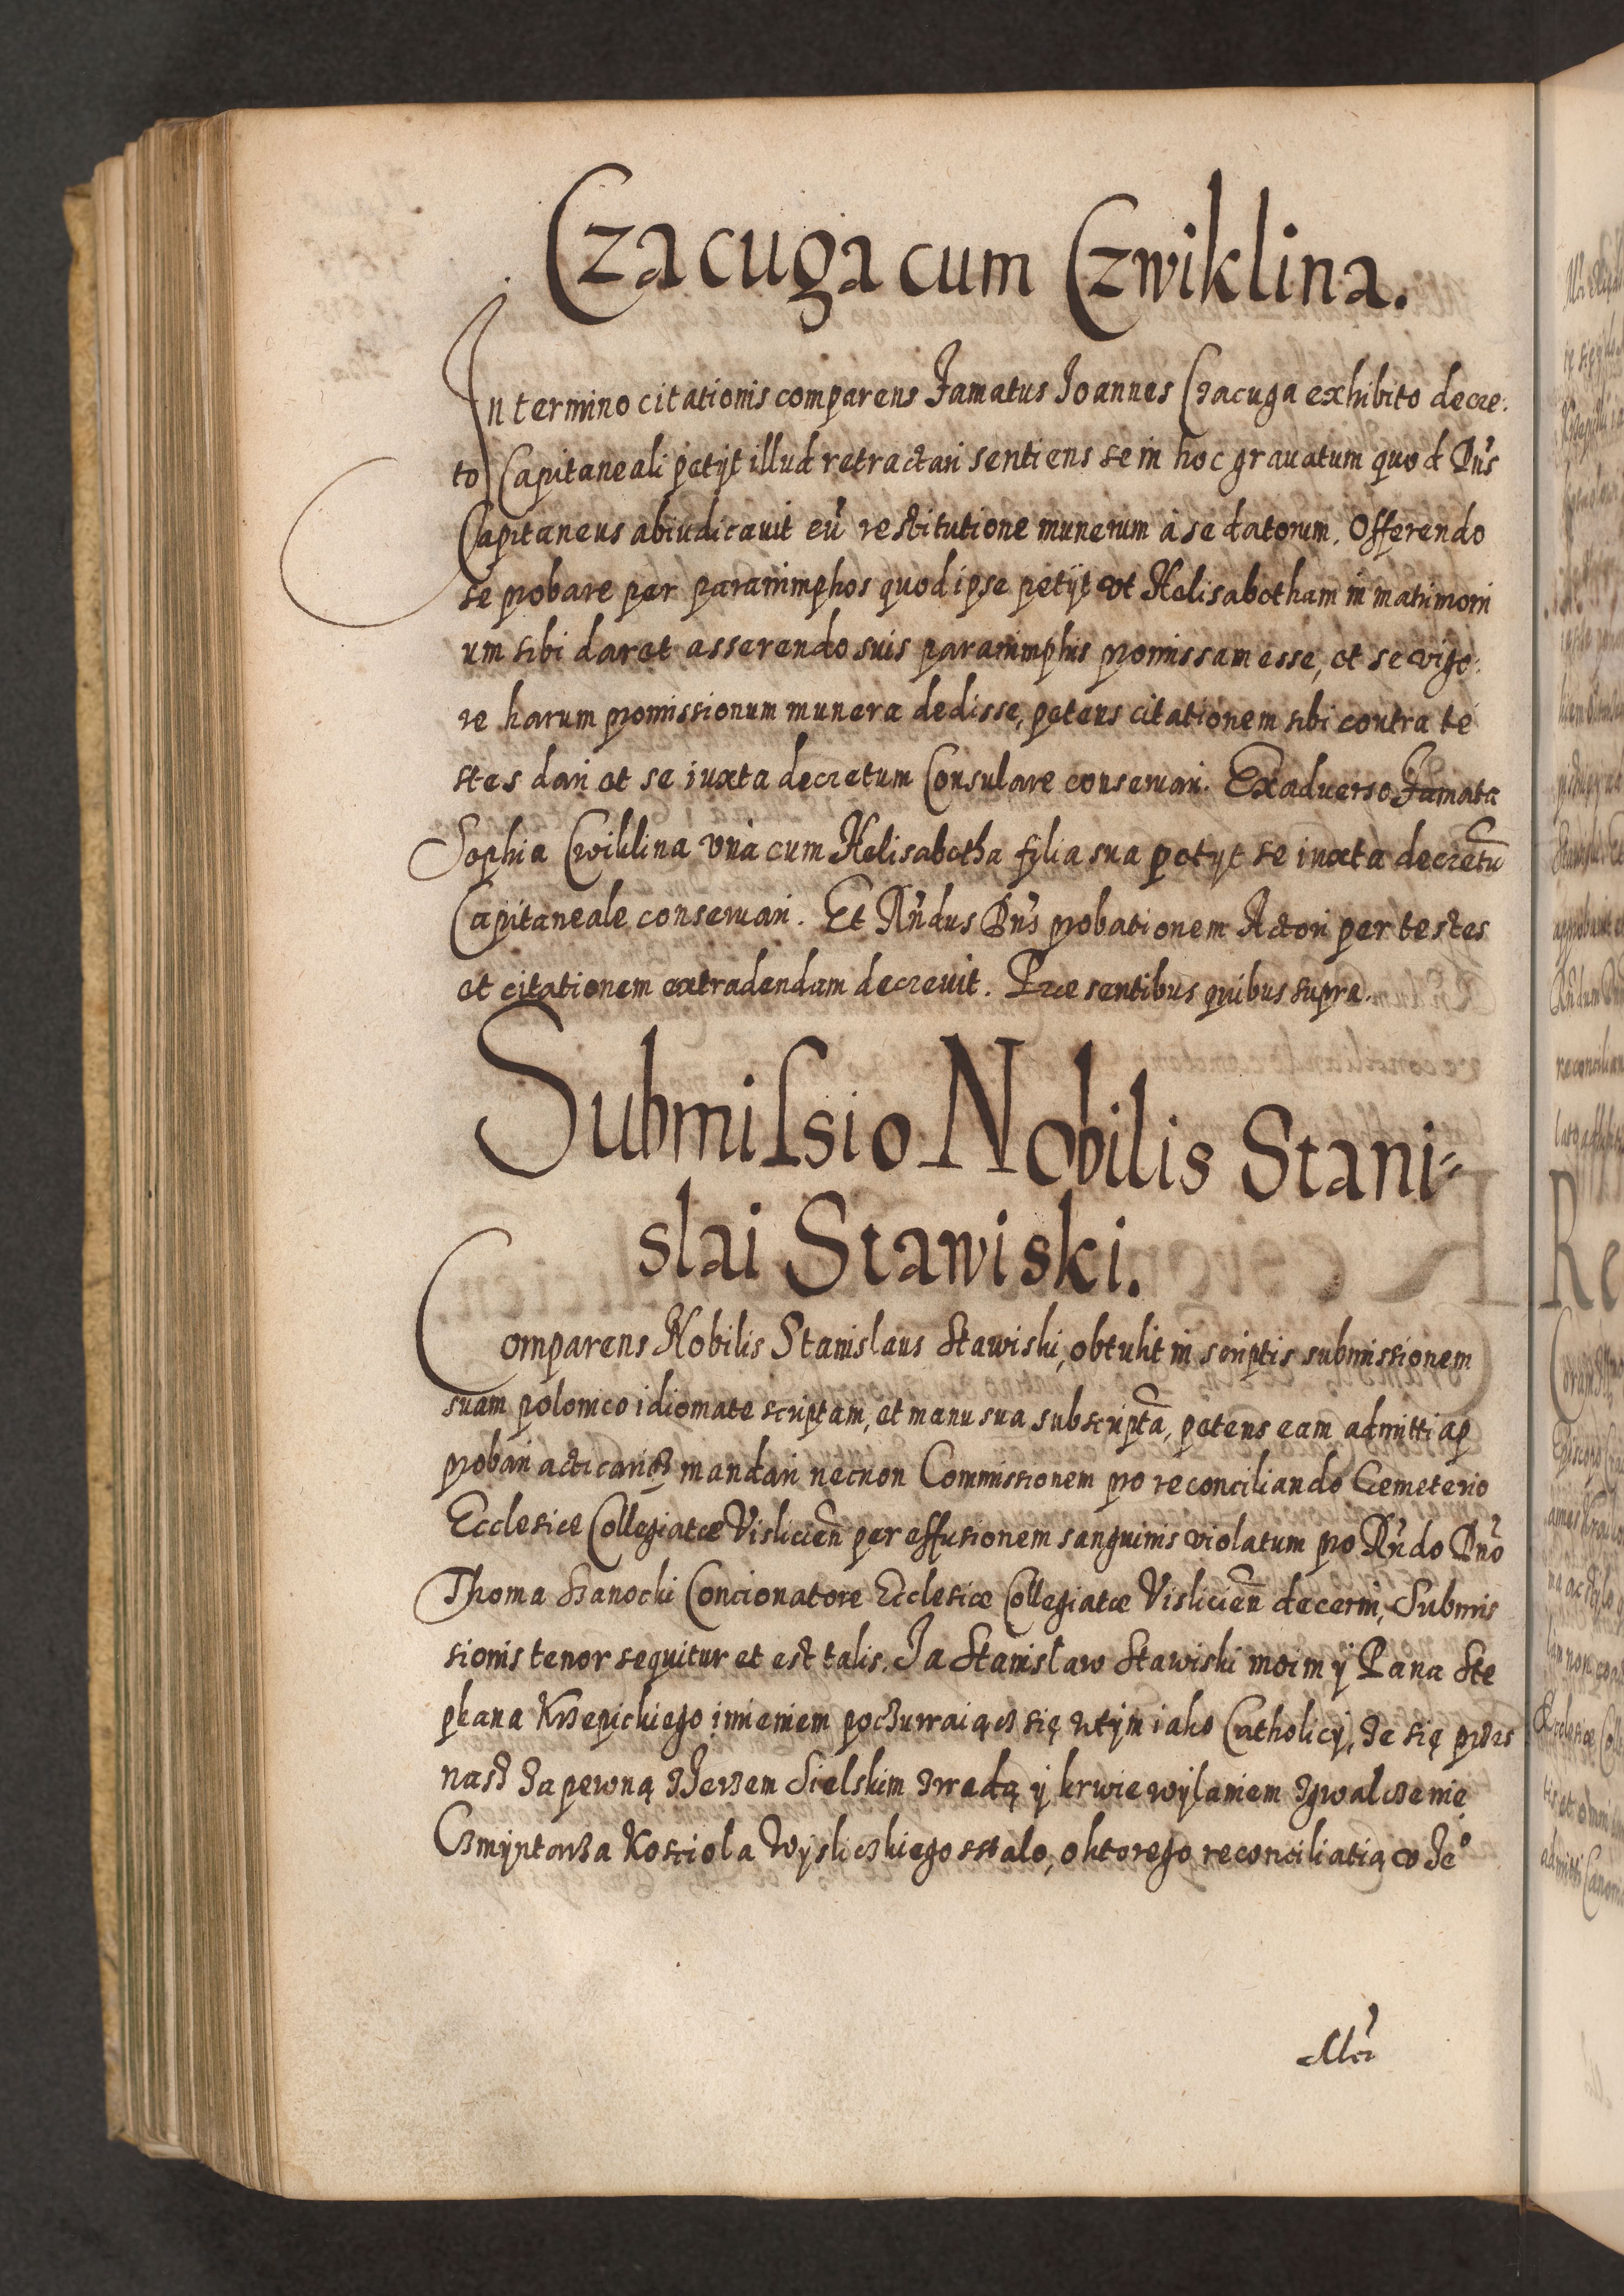 Czacuga cum Czwiklina.
In termino citationis comparens Famatus Joannes Czacuga exhibito decre:
to Capitaneali petyt illud retractari sentiens se in hoc grauatum quod Dn̄s
Capitaneus abiudicauit eū restitutione munerum à se datorum. Offerendo
se probare per paranimphos quod ipse petÿt vt Helisabetham in matrimoni
um sibi daret asserendo suis paranimphis promissam esse, et se vigo:
re harum promissionum munera dedisse, petens citationem sibi contra te
stes dari et se iuxta decretum Consulare conseruari. Ex aduerso Famata
Sophia Cwiklina vnà cum Helisabetha fylia sua petyt se iuxta decretū
Capitaneale conseruari. Et Rn̄dus Dn̄s probationem Actori per testes
et citationem extradendam decreuit. Præsentibus quibus supra.
Submiſsio Nobilis Stani=
slai Stawiski.
Comparens Nobilis Stanislaus Stawiski, obtulit in scriptis submissionem
suam polonico idiomate scriptam, et manu sua subscriptā, petens eam admitti ap
probari acticariqz mandari necnon Commissionem pro reconciliando Cemeterio
Ecclesiæ Collegiatæ Vislicień per effusionem sanguinis violatum pro Rn̄do Dn̄o
Thoma Szanocki Concionatore Ecclesiæ Collegiatæ Vislicień decerni, Submis
sionis tenor sequitur et est talis. Ja Stanislaw Stawiski moim ÿ Pana Ste
phana Krzepickiego imieniem poczuwaiącz się wtÿm iako Catholicÿ, ze się przes
nasz za pewną zJerzem Sielskim zwadą ÿ krwie wÿlaniem zgwalczenie
Czmÿntarza Kosciola Wÿsliczkiego sstalo, oktorego reconciliatią v Je°